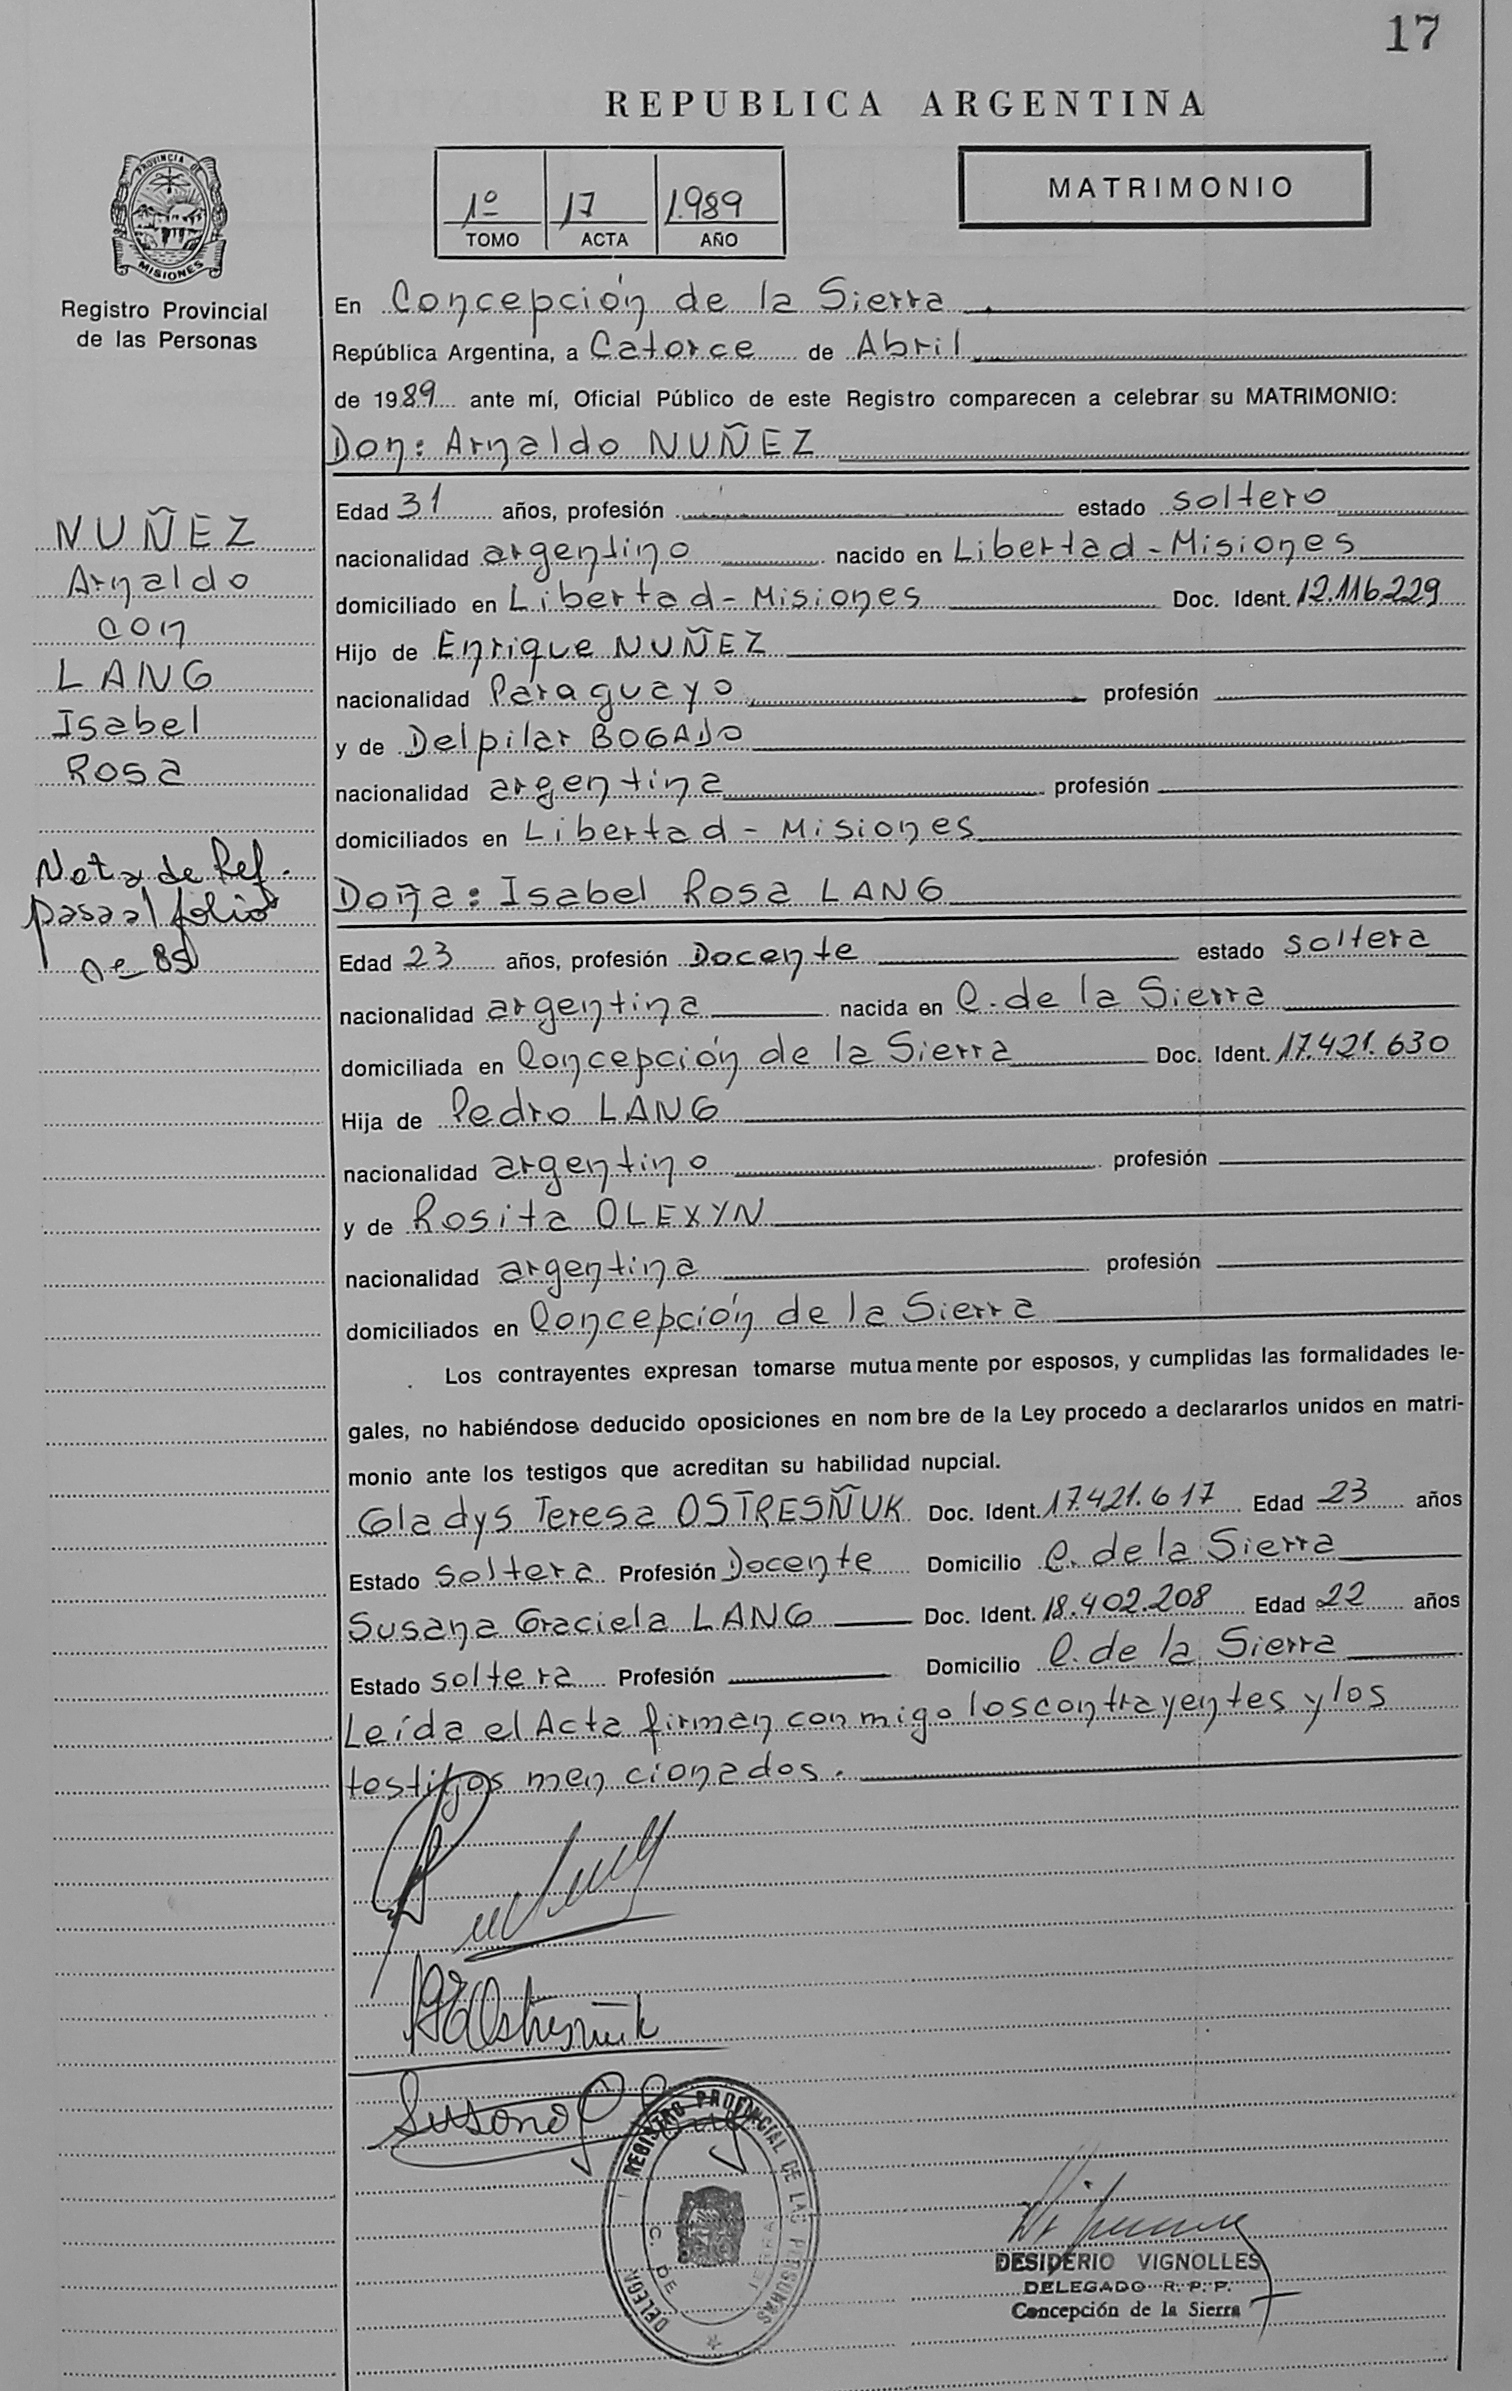 17
REPUBLICA ARGENTINA
PROVINCIA DE
MISIONES
Registro Provincial
de las Personas
1º 17 1.989
TOMO ACTA AÑO
MATRIMONIO
En Concepción de la Sierra
República Argentina, a Catorce de Abril
de 1989 ante mí, Oficial Público de este Registro comparecen a celebrar su MATRIMONIO:
Don: Arnaldo NUÑEZ
Edad 31 años, profesión estado soltero
nacionalidad argentino nacido en Libertad - Misiones
domiciliado en Libertad - Misiones Doc. Ident. 12.116.229
Hijo de Enrique NUÑEZ
nacionalidad Paraguayo profesión
y de Delpilar BOGADO
nacionalidad argentina profesión
domiciliados en Libertad - Misiones
NUÑEZ
Arnaldo
con
LANG
Isabel
Rosa
Nota de Ref.
pasa al folio
nº 85
Doña: Isabel Rosa LANG
Edad 23 años, profesión Docente estado soltera
nacionalidad argentina nacida en C. de la Sierra
domiciliada en Concepción de la Sierra Doc. Ident. 17.421.630
Hija de Pedro LANG
nacionalidad argentino profesión
y de Rosita OLEXYN
nacionalidad argentina profesión
domiciliados en Concepción de la Sierra
Los contrayentes expresan tomarse mutuamente por esposos, y cumplidas las formalidades le-
gales, no habiéndose deducido oposiciones en nombre de la Ley procedo a declararlos unidos en matri-
monio ante los testigos que acreditan su habilidad nupcial.
Gladys Teresa OSTRESÑUK Doc. Ident. 17.421.617 Edad 23 años
Estado soltera Profesión Docente Domicilio C. de la Sierra
Susana Graciela LANG Doc. Ident. 18.402.208 Edad 22 años
Estado soltera Profesión Domicilio C. de la Sierra
Leída el Acta firman conmigo los contrayentes y los
testigos mencionados.
Susana G Lang
REGISTRO PROVINCIAL DE LAS PERSONAS
C. DE
DESIDERIO VIGNOLLES
DELEGADO R. P. P.
Concepción de la Sierra